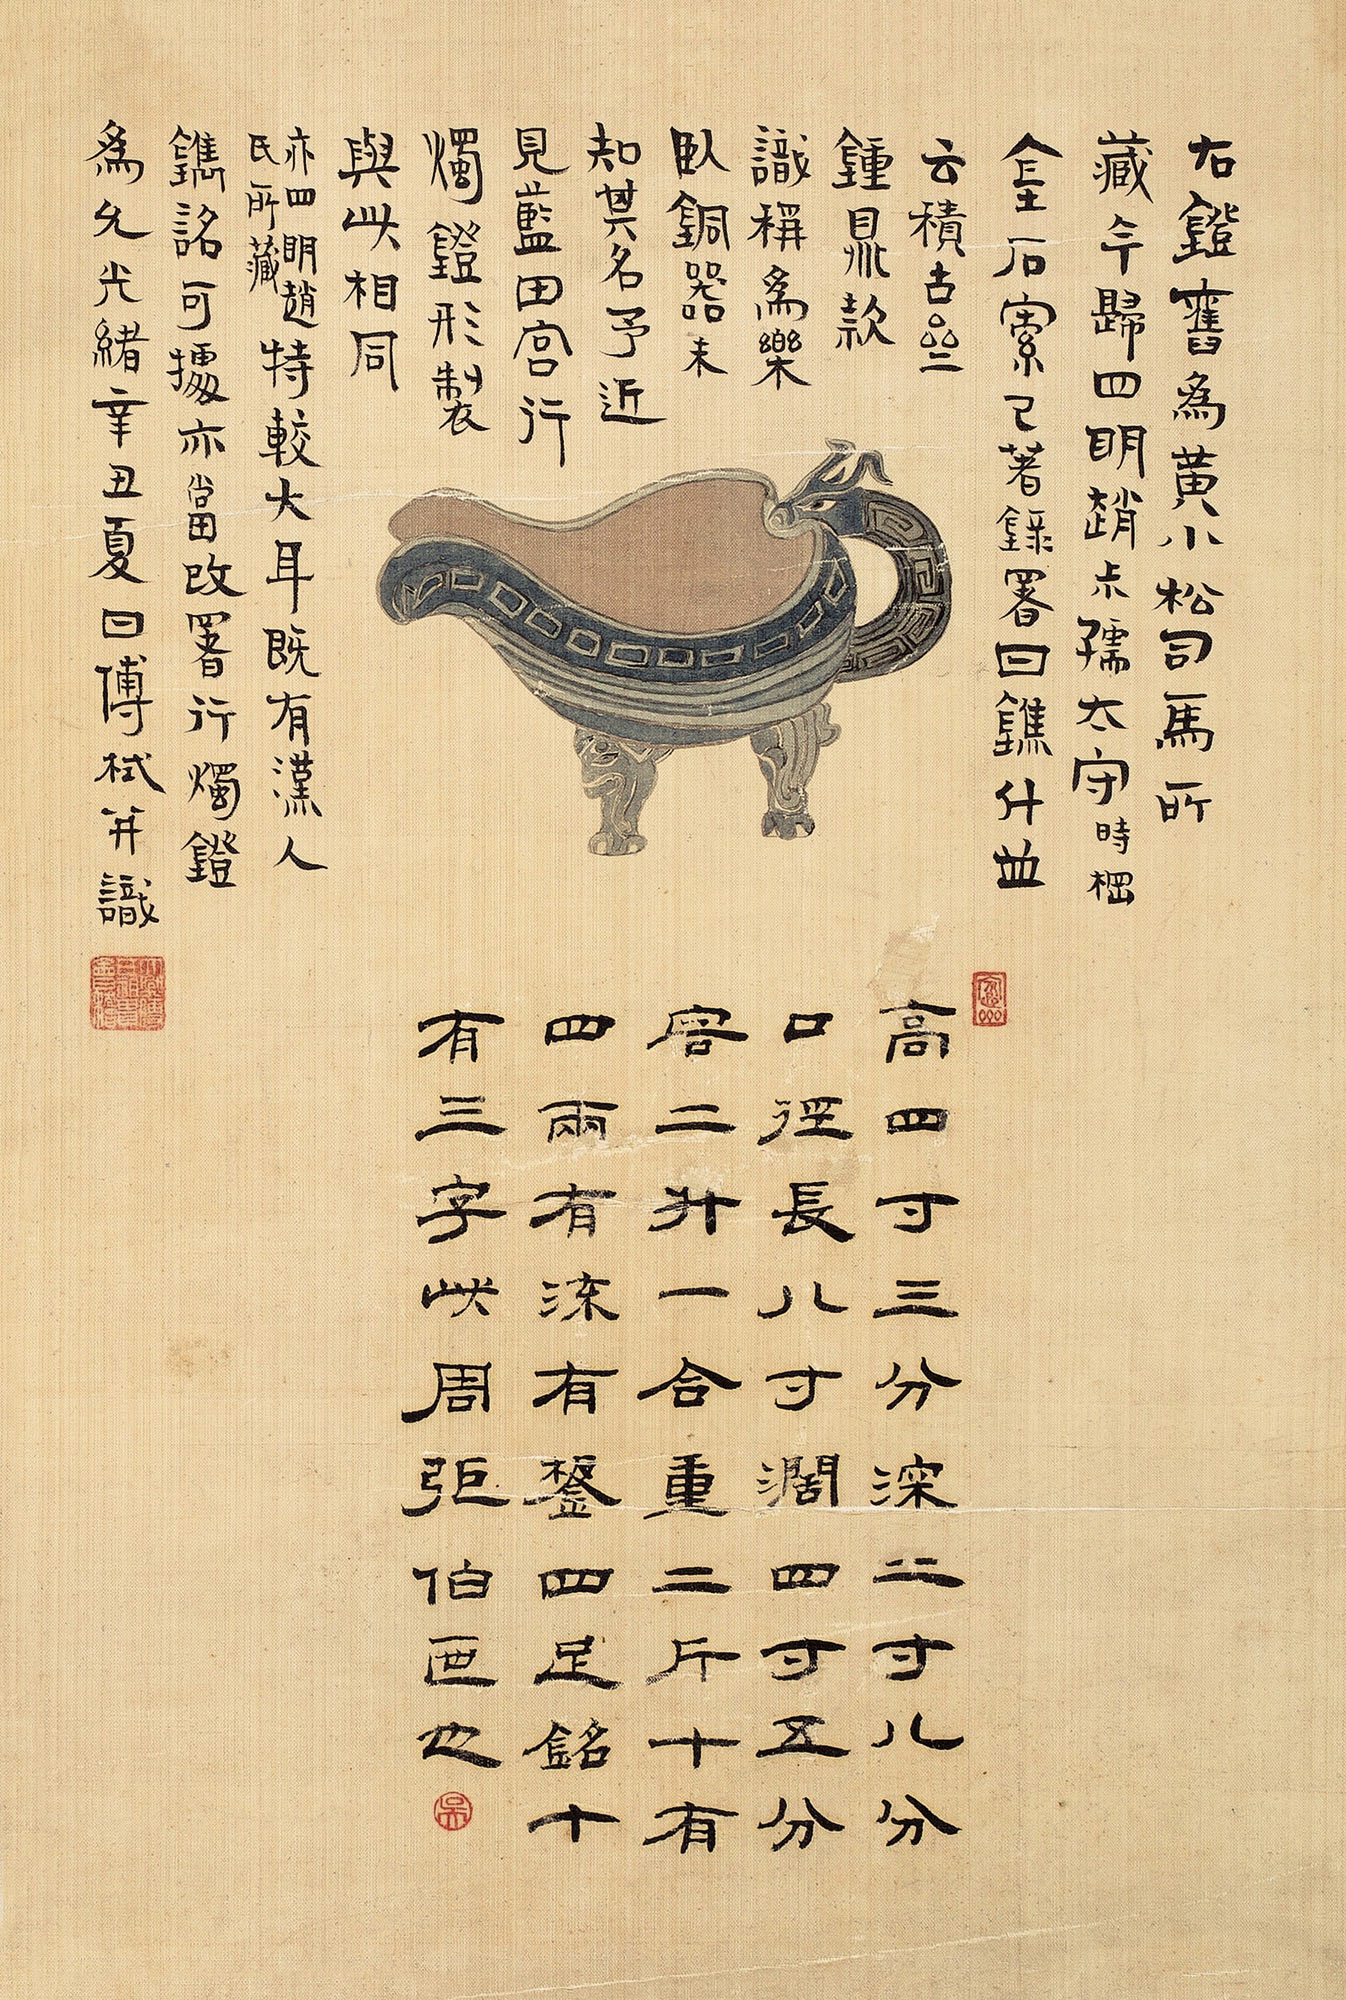 右鐙舊為黃小松司馬所
藏今歸四明趙尗孺太守時棡
金石索已著錄署曰鐎斗並
云積古齋
鍾鼎款
識稱為樂
臥銅器未
知其名予近
見藍田宮行
燭鐙形製
與此相同
亦四明趙
氏所藏
特較大耳既有漢人
鐫銘可據亦當改署行燭鐙
為允光緒辛丑夏日傅栻并識
高四寸三分深二寸八分
口徑長八寸濶四寸五分
容二升一合重二斤十有
四兩有流有鋬四足銘十
有三字此周弡伯匜也
吳